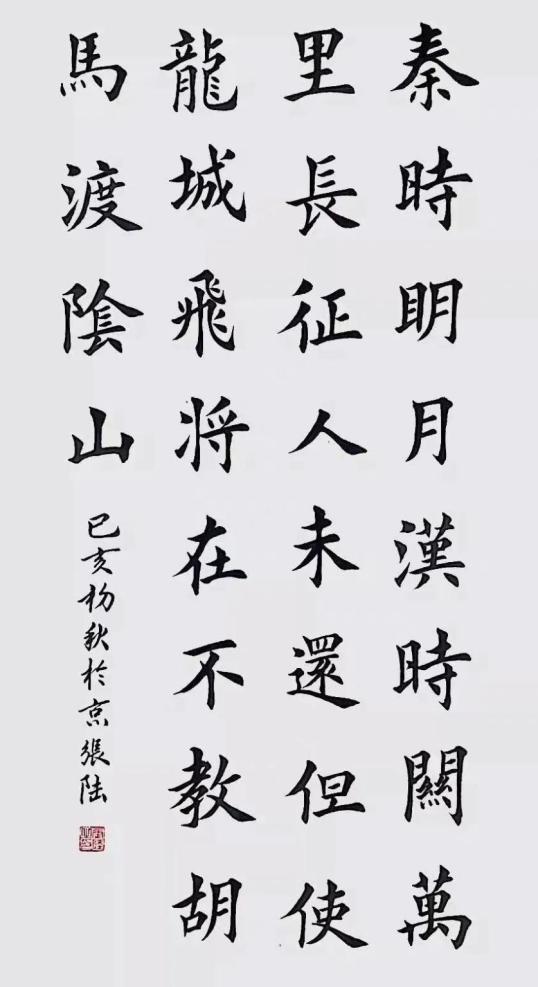 秦時明月漢時關萬
里長征人未還但使
龍城飛将在不教胡
馬渡陰山
己亥初秋於京張陆